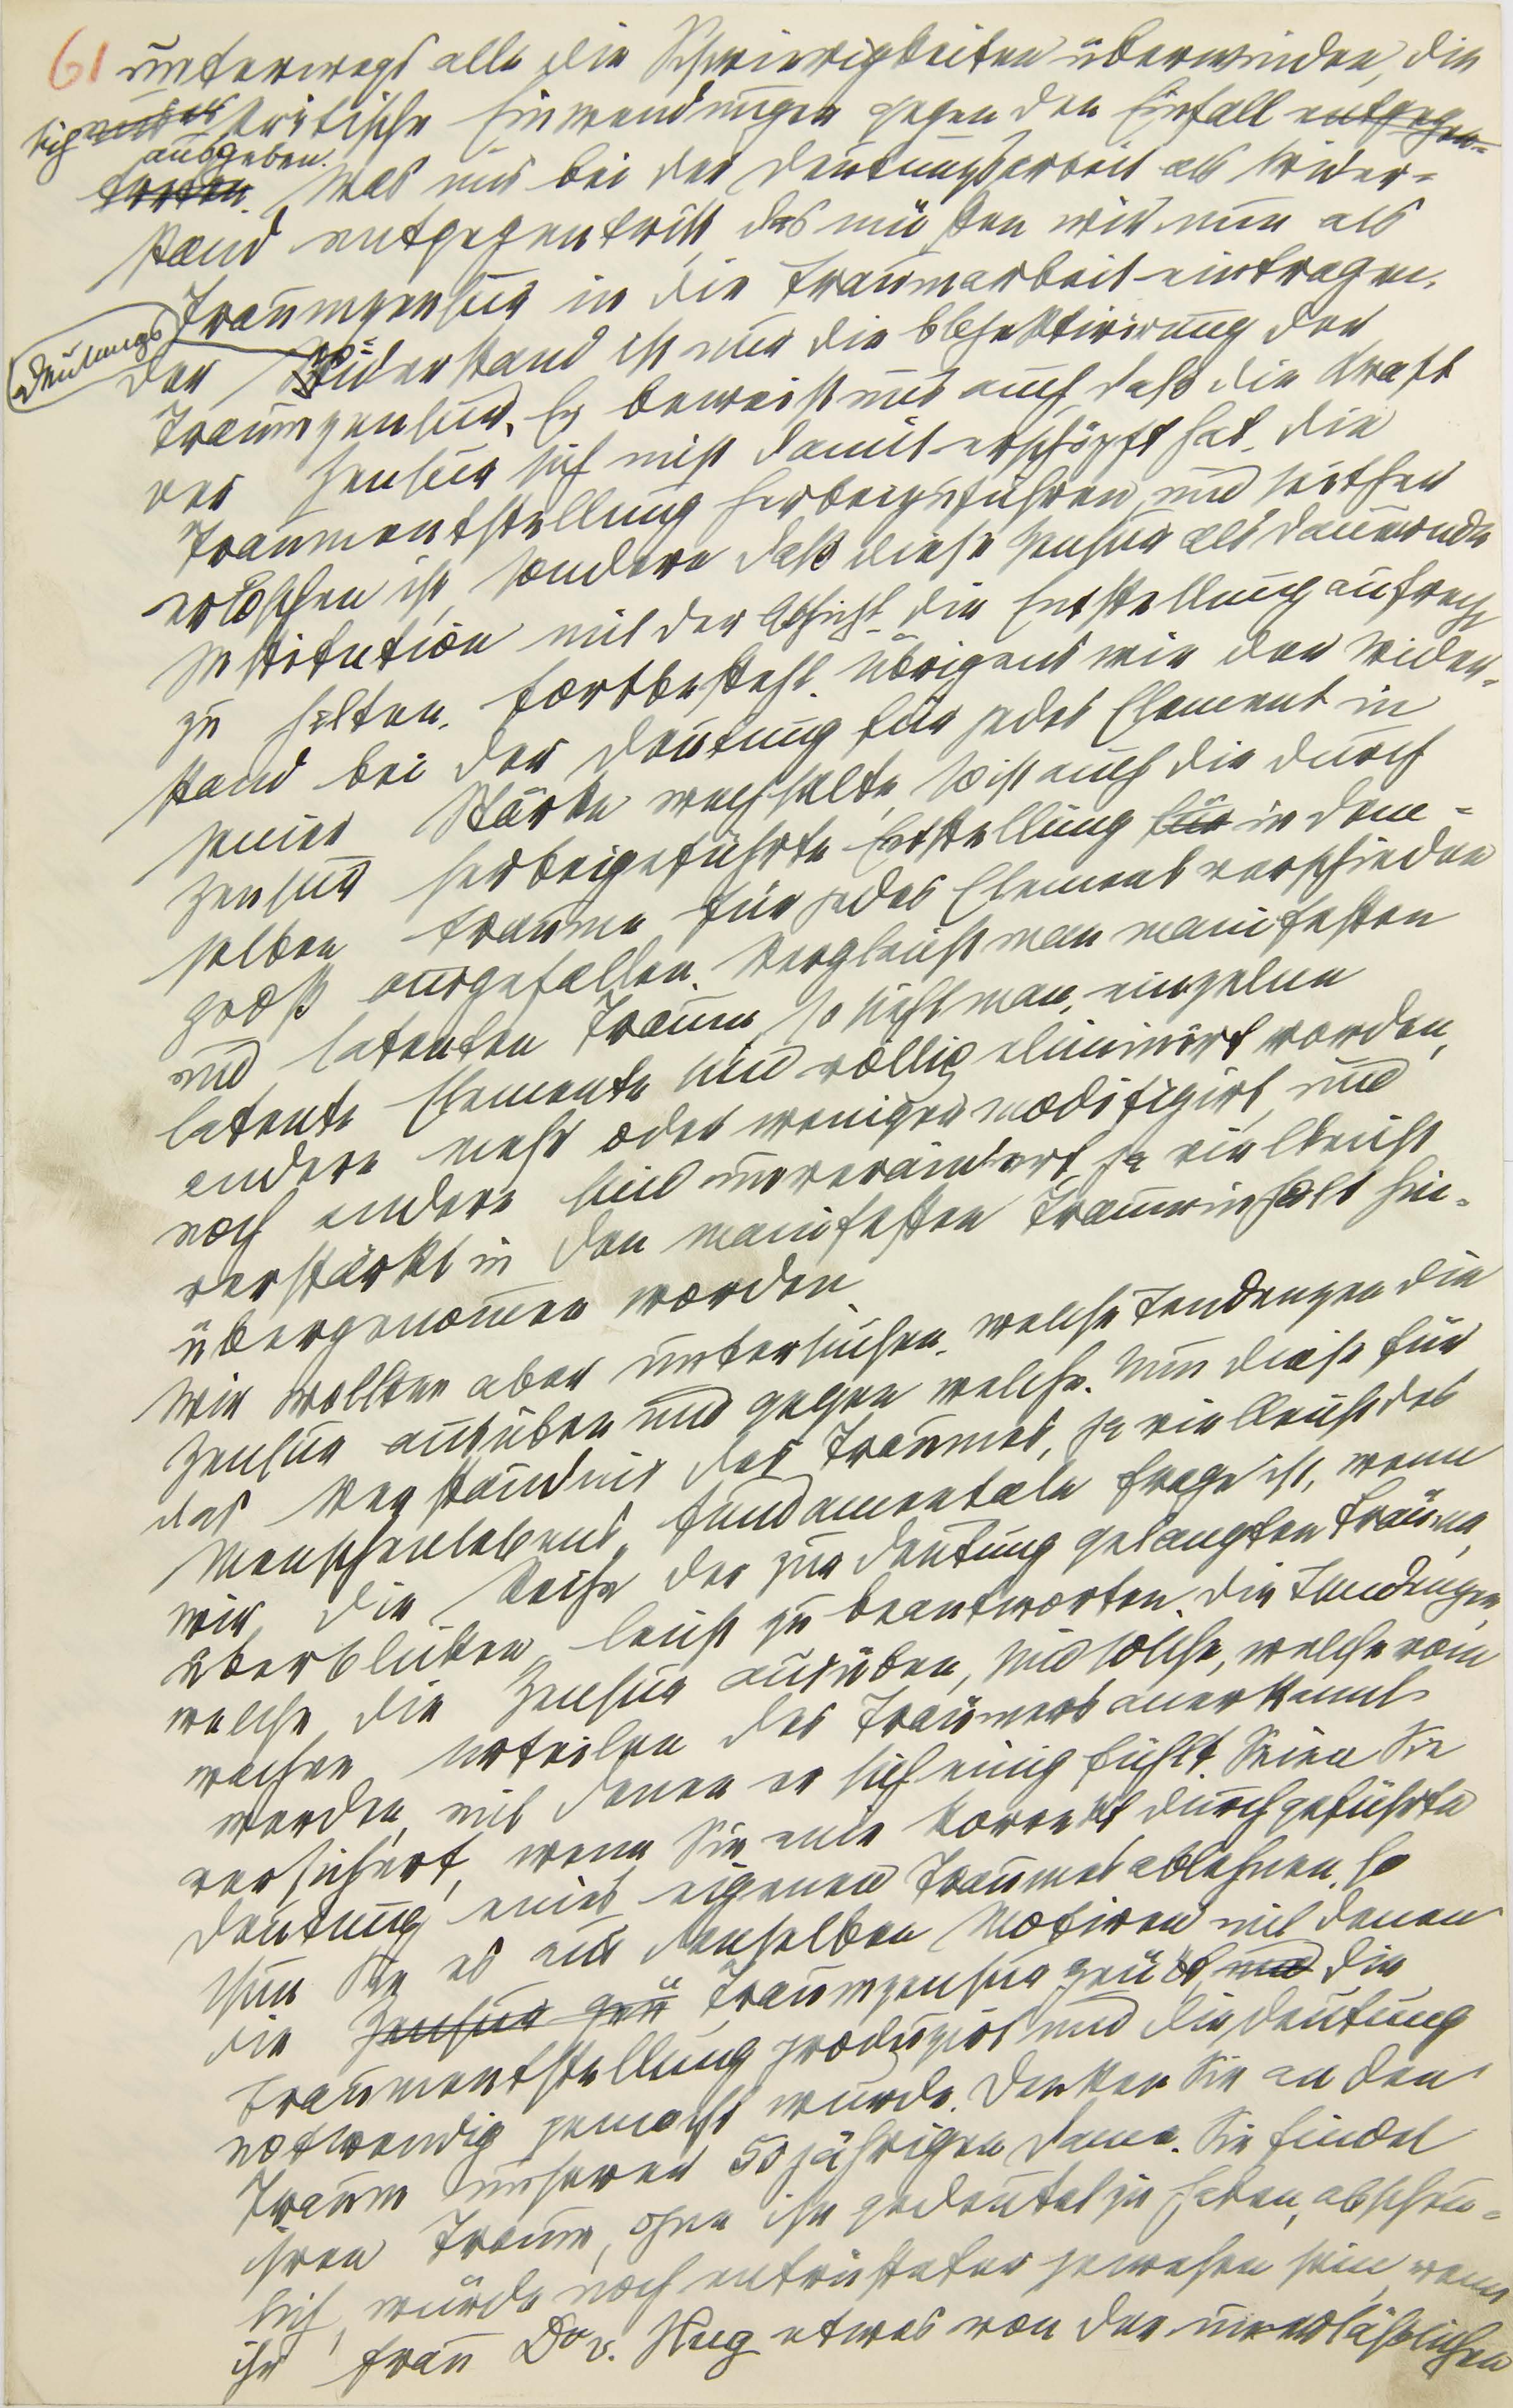 61 unterwegs alle die Schwierigkeiten überwinden, die
sich als kritische Einwendungen gegen den Einfall entgegen-
ausgeben.
Was uns bei der Deutungsarbeit als Wider-
stand entgegentritt, das müssen wir nun als
Traumzensur in die Traumarbeit eintragen.
Deutungs
Der Widerstand ist nur die Objektivirung der
Traumzensur. Er beweist uns auch daß die Kraft
der Zensur sich nicht damit erschöpft hat, die
Traumentstellung herbeizuführen, und seither
erloschen ist, sondern daß diese Zensur als dauernde
Institution mit der Absicht, die Entstellung aufrecht
zu halten, fortbesteht. Übrigens wie der Wider-
stand bei der Deutung für jedes Element in
seiner Stärke wechselte, so ist auch die durch
Zensur herbeigeführte Entstellung für in dem-
selben Traume für jedes Element verschieden
groß ausgefallen. Vergleicht man manifesten
und latenten Traum, so sieht man, einzelne
latente Elemente sind völlig eliminirt worden,
andere mehr oder weniger modifizirt, und
noch andere sind unverändert, ja vielleicht
verstärkt in den manifesten Trauminhalt hin-
übergenommen worden
Wir wollten aber untersuchen, welche Tendenzen die
Zensur ausüben und gegen welche. Nun diese für
das Verständnis des Traumes, ja vielleicht des
Menschenlebens, fundamentale Frage ist, wenn
wir die Reihe der zur Deutung gelangten Träume
überblicken, leicht zu beantworten. Die Tendenzen,
welche die Zensur ausüben, sind solche, welche vom
wachen Urteilen des Träumers anerkannt
werden, mit denen er sich einig fühlt. Seien Sie
versichert, wenn Sie eine korrekt durchgeführte
Deutung eines eigenen Traumes ablehnen, so
thun Sie es aus denselben Motiven, mit denen
die Zensur geü Traumzensur geübt und die
Traumentstellung produzirt und die Deutung
notwendig gemacht wurde. Denken Sie an den
Traum unserer 50jährigen Dame. Sie findet
ihren Traum, ohne ihn gedeutet zu haben, abscheu-
lich, würde noch entrüsteter gewesen sein, wenn
ihr Frau Dr v. Hug etwas von der unerläßlichen